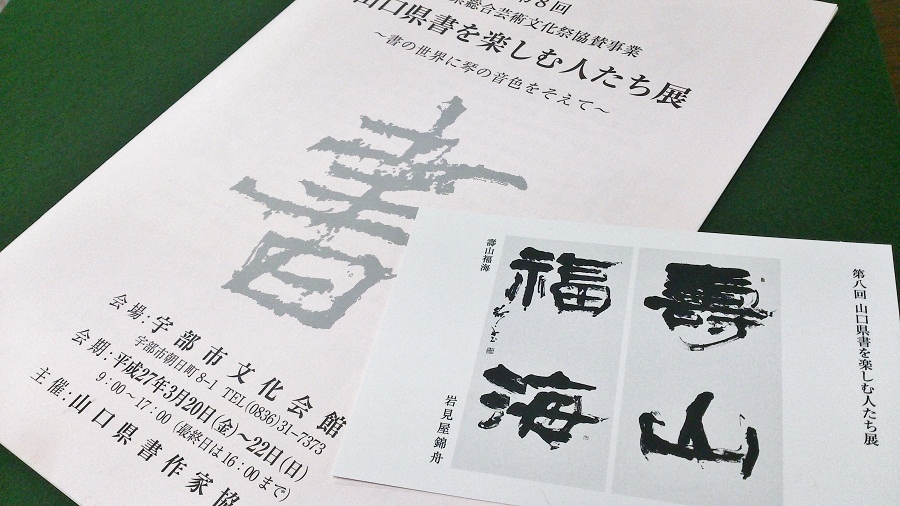 第8回
県総合芸術文化祭協賛事業
山口県書を楽しむ人たち展
～書の世界に琴の音色をそえて～
書
会場：宇部市文化会館
宇部市朝日町8-1 TEL(0836)31-7373
会期：平成27年3月20日(金)～22日(日)
9:00～17:00 (最終日は16:00まで)
主催：山口県書作家協
第八回 山口県書を楽しむ人たち展
壽山
福海
壽山福海
岩見屋錦舟